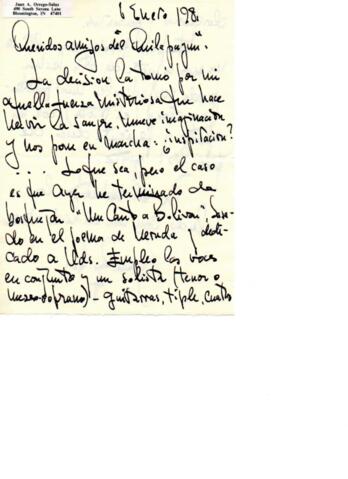 Juan A. Orrego-Salas
490 South Serena Lane
Bloomington, IN 47401
6 Enero 198
Queridos amigos del "Quilapayun":
La decision la tomó por mi
aquella fuerza misteriosa que hace
hervir la sangre, mueve imaginación
y nos pone en marcha: ¿inspiracion?
.... Lo que sea, pero el caso
es que ayer he terminado de
"Un Canto a Bolivar", basa-
do en el poema de Neruda y dedi-
cado a Uds. Empleo las voces
en conjunto y un solista (tenor o
mezzo-soprano) - guitarras, tiple, cuatro